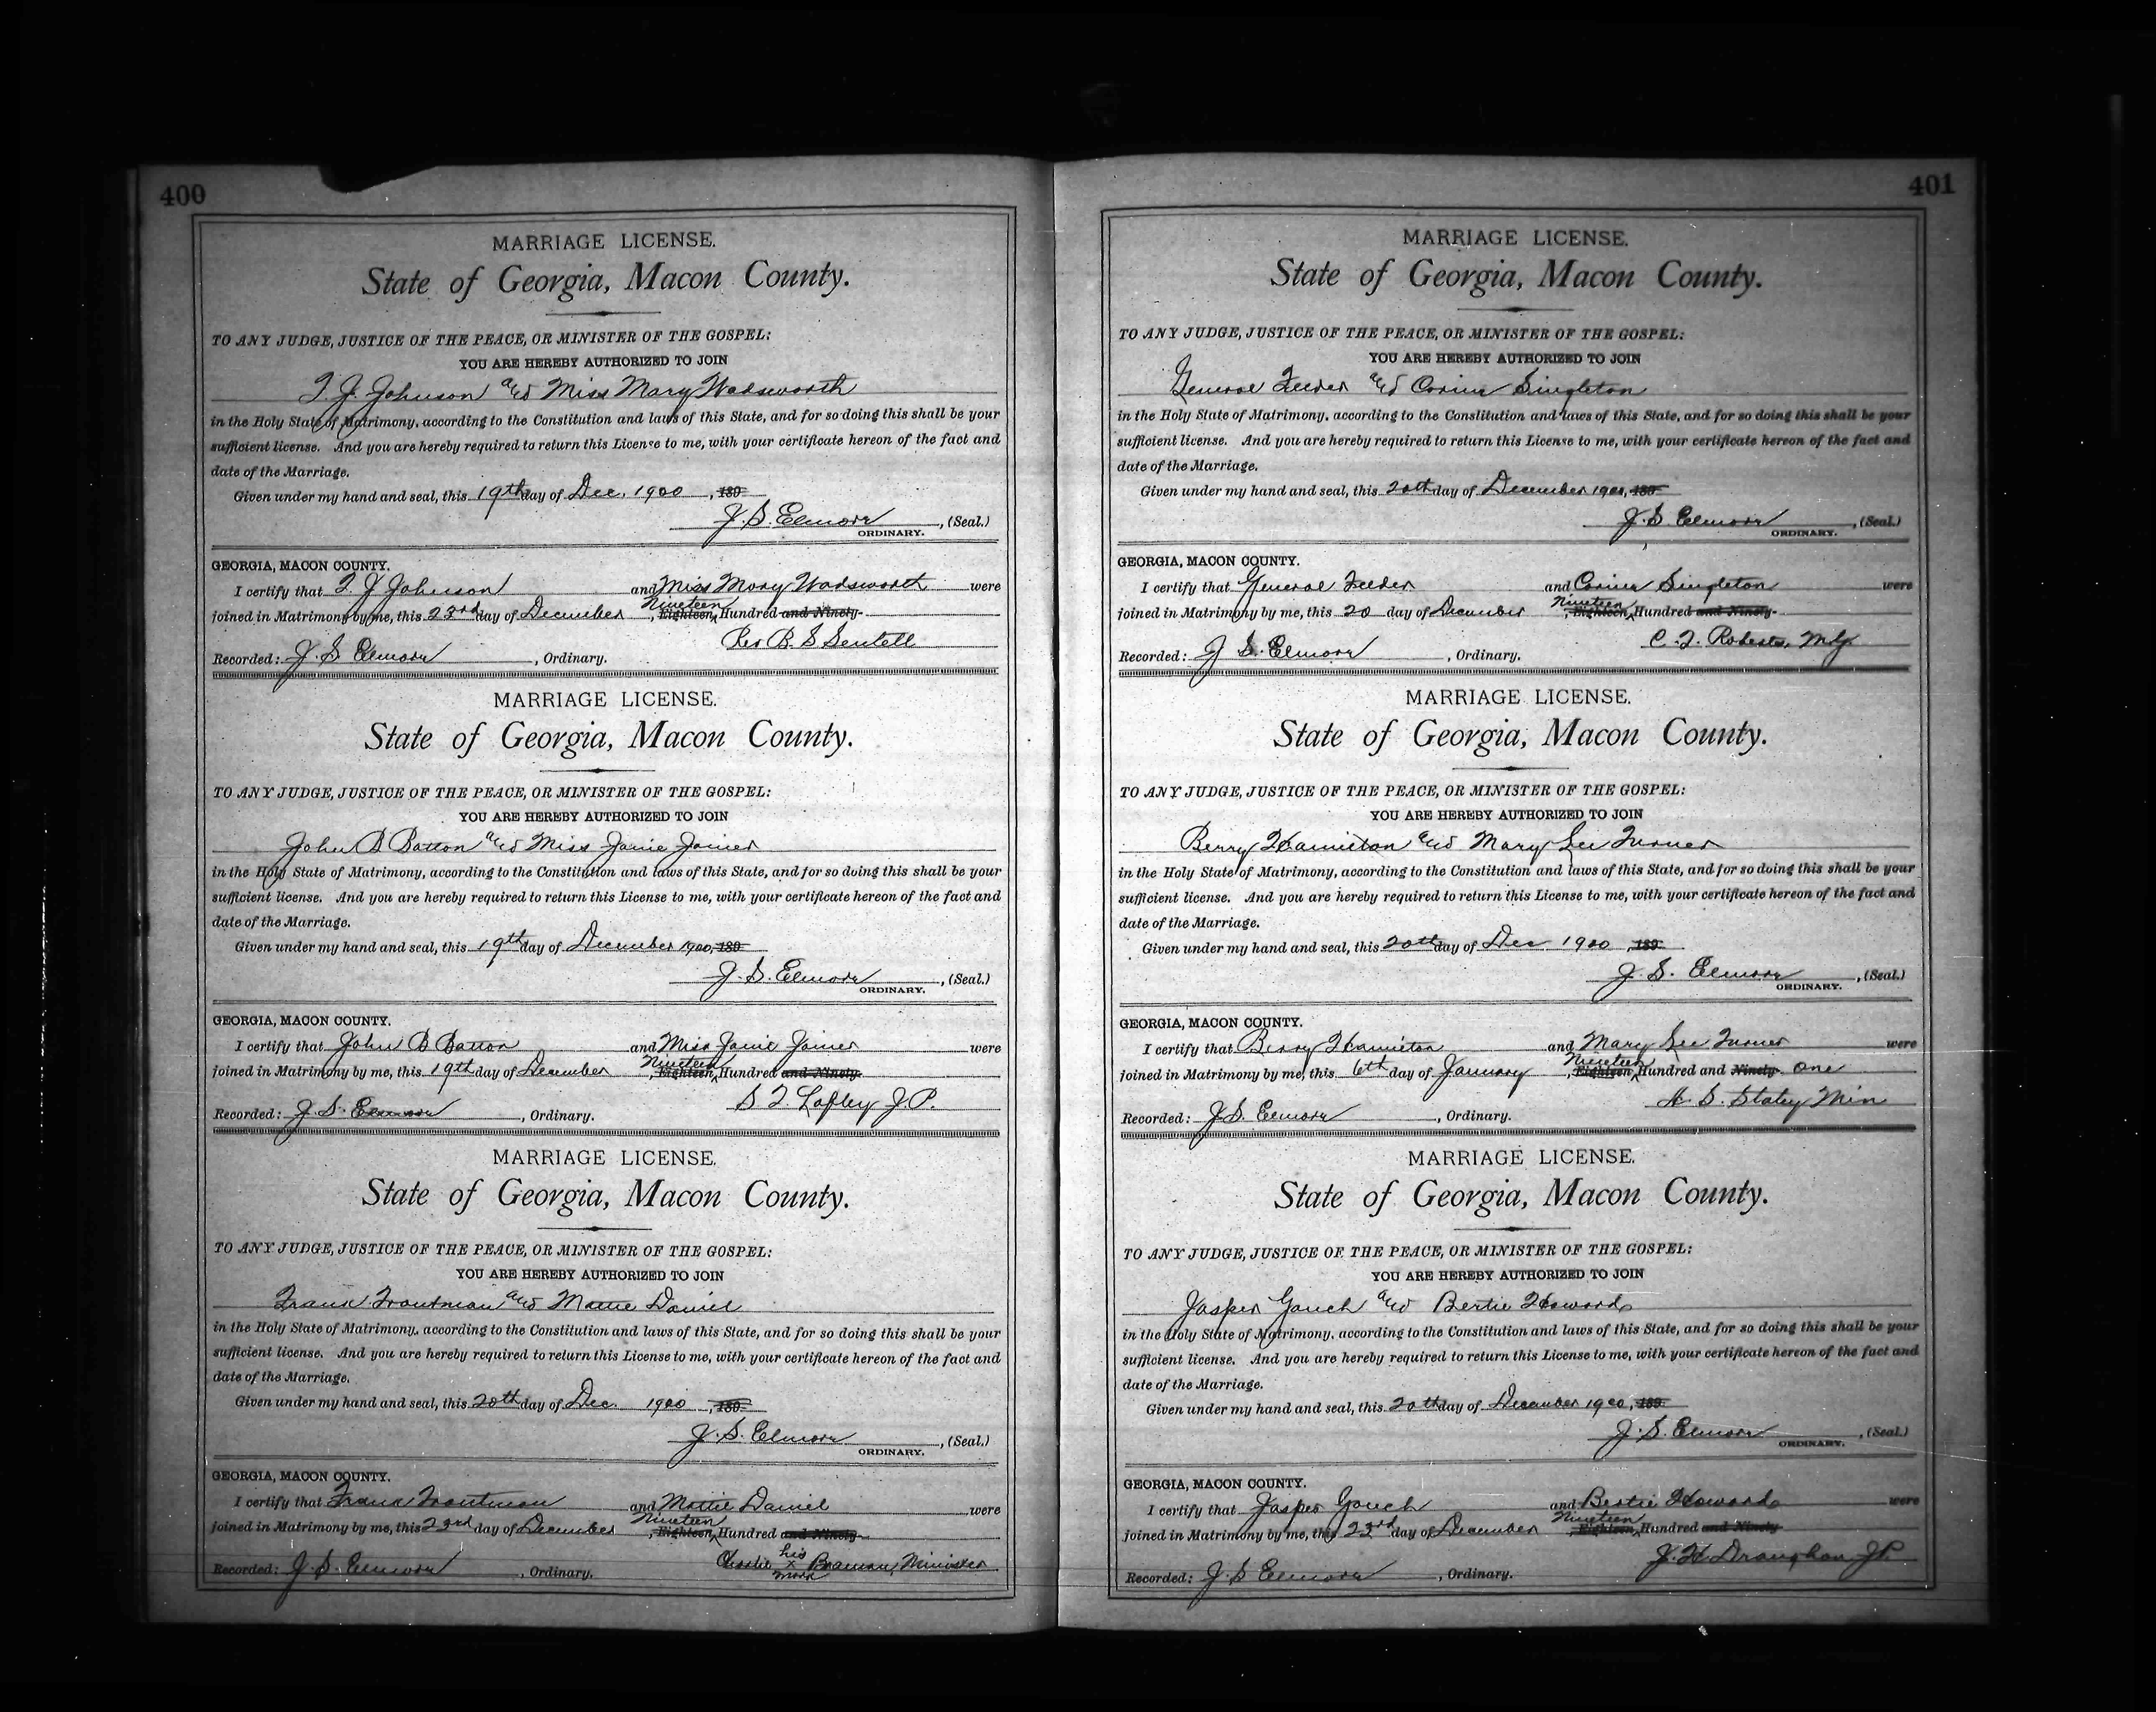 400
MARRIAGE LICENSE.
State of Georgia, Macon County.
TO ANY JUDGE, JUSTICE OF THE PEACE, OR MINISTER OF THE GOSPEL:
YOU ARE HEREBY AUTHORIZED TO JOIN
T. J. Johnson and Miss Mary Wadsworth
in the Holy State of Matrimony, according to the Constitution and laws of this State, and for so doing this shall be your
sufficient license. And you are hereby required to return this License to me, with your certificate hereon of the fact and
date of the Marriage.
Given under my hand and seal, this 19th day of Dec. 1900, 189
J. S. Elmore, (Seal.)
ORDINARY.
GEORGIA, MACON COUNTY.
I certify that T. J. Johnson and Miss Mary Wadsworth were
Nineteen
joined in Matrimony by me, this 23rd day of December, Eighteen Hundred and Ninety-
Rev B. S. Sentell
Recorded: J. S. Elmore, Ordinary.
MARRIAGE LICENSE.
State of Georgia, Macon County.
TO ANY JUDGE, JUSTICE OF THE PEACE, OR MINISTER OF THE GOSPEL:
YOU ARE HEREBY AUTHORIZED TO JOIN
John B Batton and Miss Janie Joiner
in the Holy State of Matrimony, according to the Constitution and laws of this State, and for so doing this shall be your
sufficient license. And you are hereby required to return this License to me, with your certificate hereon of the fact and
date of the Marriage.
Given under my hand and seal, this 19th day of December 1900, 189
J. S. Elmore, (Seal.)
ORDINARY.
GEORGIA, MACON COUNTY.
I certify that John B Batton and Miss Janie Joiner were
Nineteen
joined in Matrimony by me, this 19th day of December, Eighteen Hundred and Ninety-
J.P.
Recorded: J. S. Elmore, Ordinary.
MARRIAGE LICENSE.
State of Georgia, Macon County.
TO ANY JUDGE, JUSTICE OF THE PEACE, OR MINISTER OF THE GOSPEL:
YOU ARE HEREBY AUTHORIZED TO JOIN
Frank Troutman and Mattie Daniel
in the Holy State of Matrimony, according to the Constitution and laws of this State, and for so doing this shall be your
sufficient license. And you are hereby required to return this License to me, with your certificate hereon of the fact and
date of the Marriage.
Given under my hand and seal, this 20th day of Dec. 1900, 189
J. S. Elmore, (Seal.)
ORDINARY.
GEORGIA, MACON COUNTY.
I certify that Frank Troutman and Mattie Daniel were
Nineteen
joined in Matrimony by me, this 23rd day of December, Eighteen Hundred and Ninety-
his
Charlie x Minister
mark
Recorded: J. S. Elmore, Ordinary.
401
MARRIAGE LICENSE.
State of Georgia, Macon County.
TO ANY JUDGE, JUSTICE OF THE PEACE, OR MINISTER OF THE GOSPEL:
YOU ARE HEREBY AUTHORIZED TO JOIN
General Felder and Corine Singleton
in the Holy State of Matrimony, according to the Constitution and laws of this State, and for so doing this shall be your
sufficient license. And you are hereby required to return this License to me, with your certificate hereon of the fact and
date of the Marriage.
Given under my hand and seal, this 20th day of December 1900, 189
J. S. Elmore, (Seal.)
ORDINARY.
GEORGIA, MACON COUNTY.
I certify that General Felder and Corine Singleton were
Nineteen
joined in Matrimony by me, this 20 day of December, Eighteen Hundred and Ninety-
Roberts,
Recorded: J S. Elmore, Ordinary.
MARRIAGE LICENSE.
State of Georgia, Macon County.
TO ANY JUDGE, JUSTICE OF THE PEACE, OR MINISTER OF THE GOSPEL:
YOU ARE HEREBY AUTHORIZED TO JOIN
Berry Hamilton and Mary Lee Turner
in the Holy State of Matrimony, according to the Constitution and laws of this State, and for so doing this shall be your
sufficient license. And you are hereby required to return this License to me, with your certificate hereon of the fact and
date of the Marriage.
Given under my hand and seal, this 20th day of Dec 1900, 189
J. S. Elmore, (Seal.)
ORDINARY.
GEORGIA, MACON COUNTY.
I certify that Berry Hamilton and Mary Lee Turner were
Nineteen
joined in Matrimony by me, this 6th day of January, Eighteen Hundred and Ninety- One
H. S. Staley Min
Recorded: J. S. Elmore, Ordinary.
MARRIAGE LICENSE.
State of Georgia, Macon County.
TO ANY JUDGE, JUSTICE OF THE PEACE, OR MINISTER OF THE GOSPEL:
YOU ARE HEREBY AUTHORIZED TO JOIN
Jasper Gouch and Bertie Howard
in the Holy State of Matrimony, according to the Constitution and laws of this State, and for so doing this shall be your
sufficient license. And you are hereby required to return this License to me, with your certificate hereon of the fact and
date of the Marriage.
Given under my hand and seal, this 20th day of December 1900, 189
J. S. Elmore, (Seal.)
ORDINARY.
GEORGIA, MACON COUNTY.
I certify that Jasper Gouch and Bertie Howard were
Nineteen
joined in Matrimony by me, this 23rd day of December Eighteen Hundred and Ninety
J. H. Draughan JP.
Recorded: J. S Elmore, Ordinary.